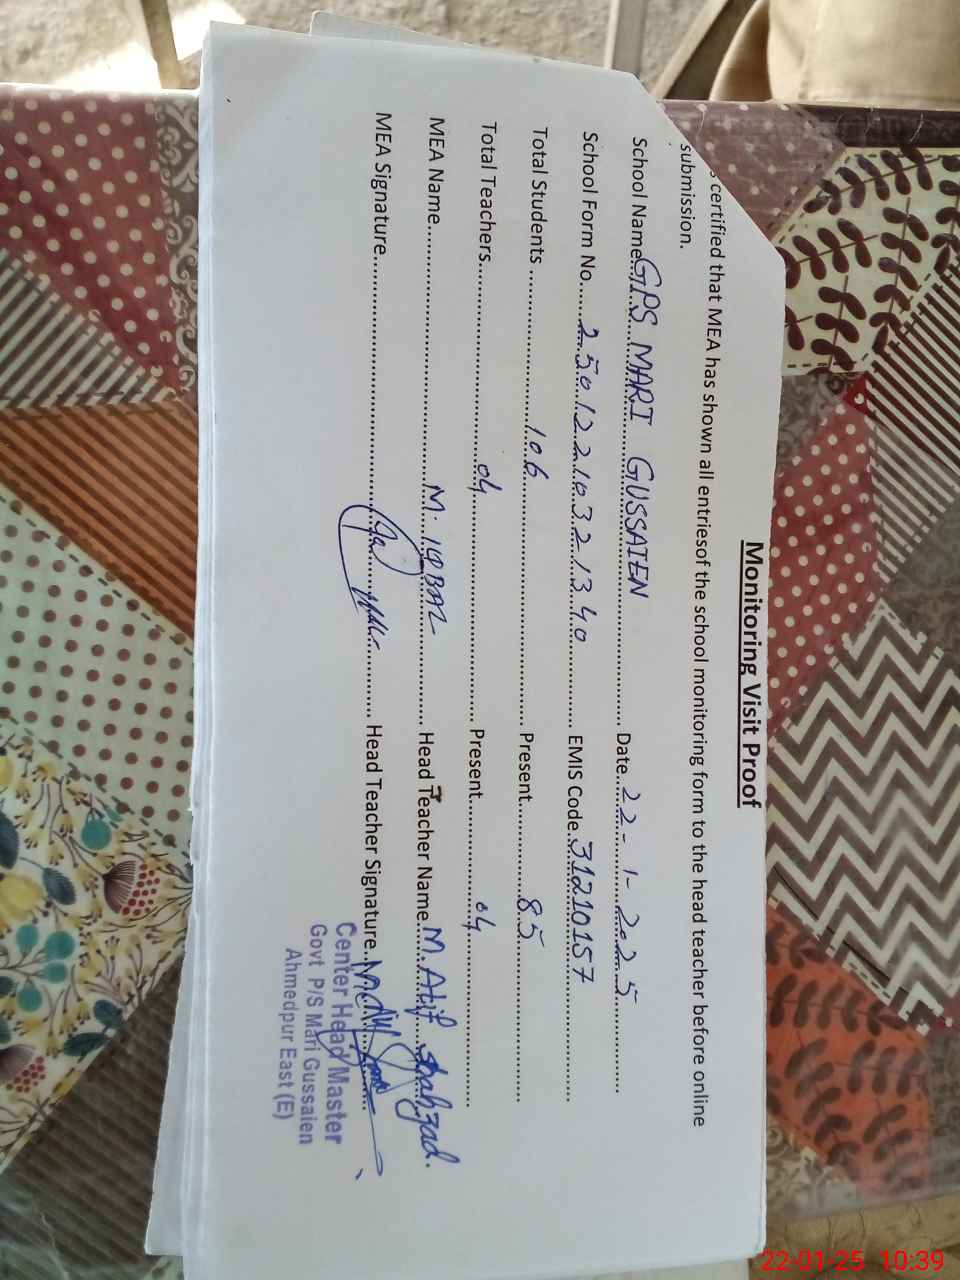 Monitoring Visit Proof
certified that MEA has shown all entriesof the school monitoring form to the head teacher before online
submission.
School Name...GPS MARI GUSSAIEN............ Date...22-1-2025............
School Form No....25012210321340............ EMIS Code..31210157............
Total Students............106............ Present............85............
Total Teachers............04............ Present............04............
MEA Name............M. IQBAL............ Head Teacher Name..M. Atif Shahzad.
MEA Signature............ Head Teacher Signature...
Center Head Master
Govt P/S Mari Gussaien
Ahmedpur East (E)
22-01-25 10:39